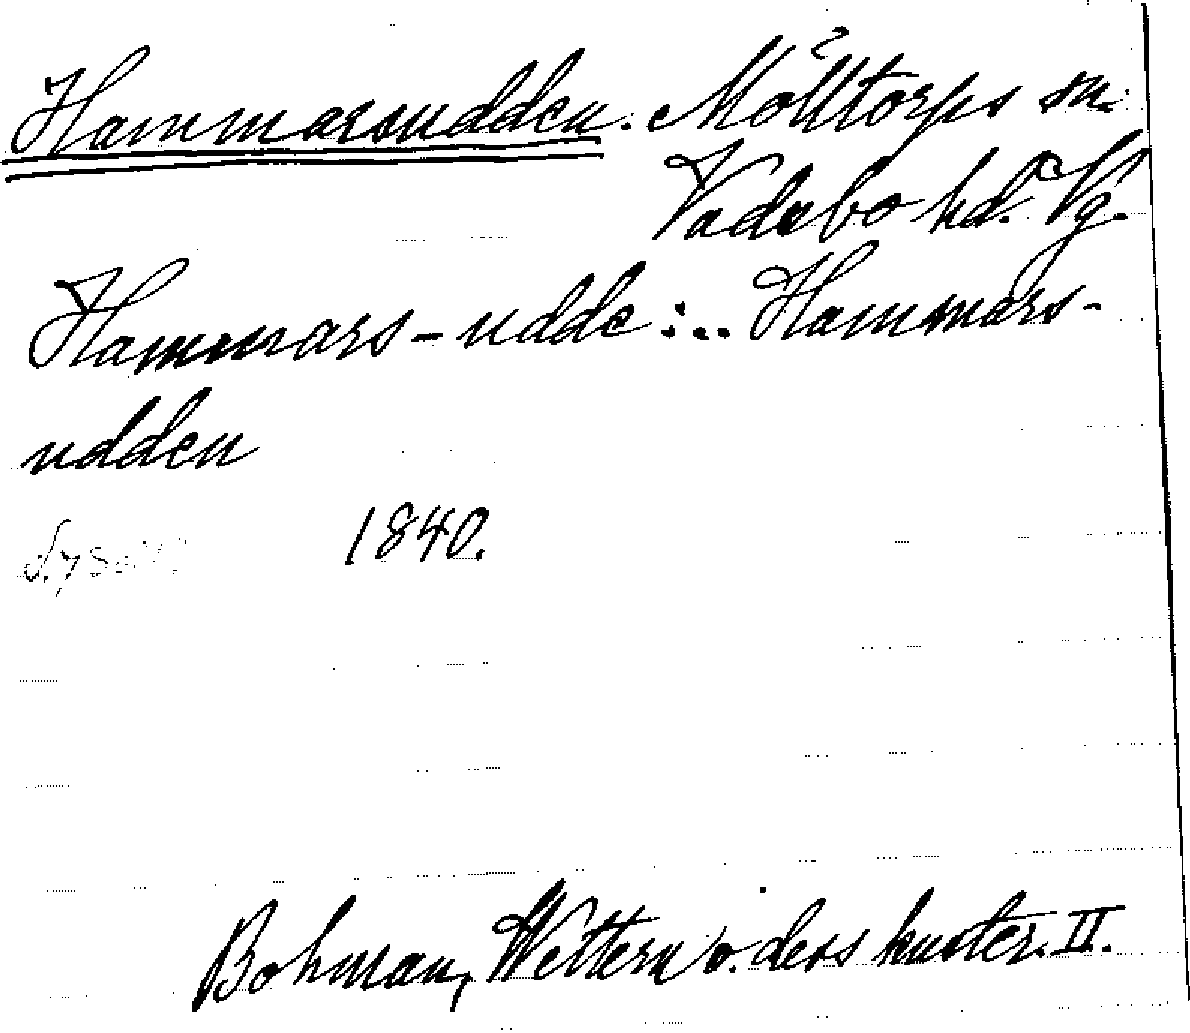 Hammarsudden. Mölltorps sn.
Vadsbo hd. Vg.
Hammars-udde:.. Hammars-
udden
1840.
Bohman, Wettern o. dess kuster. II.